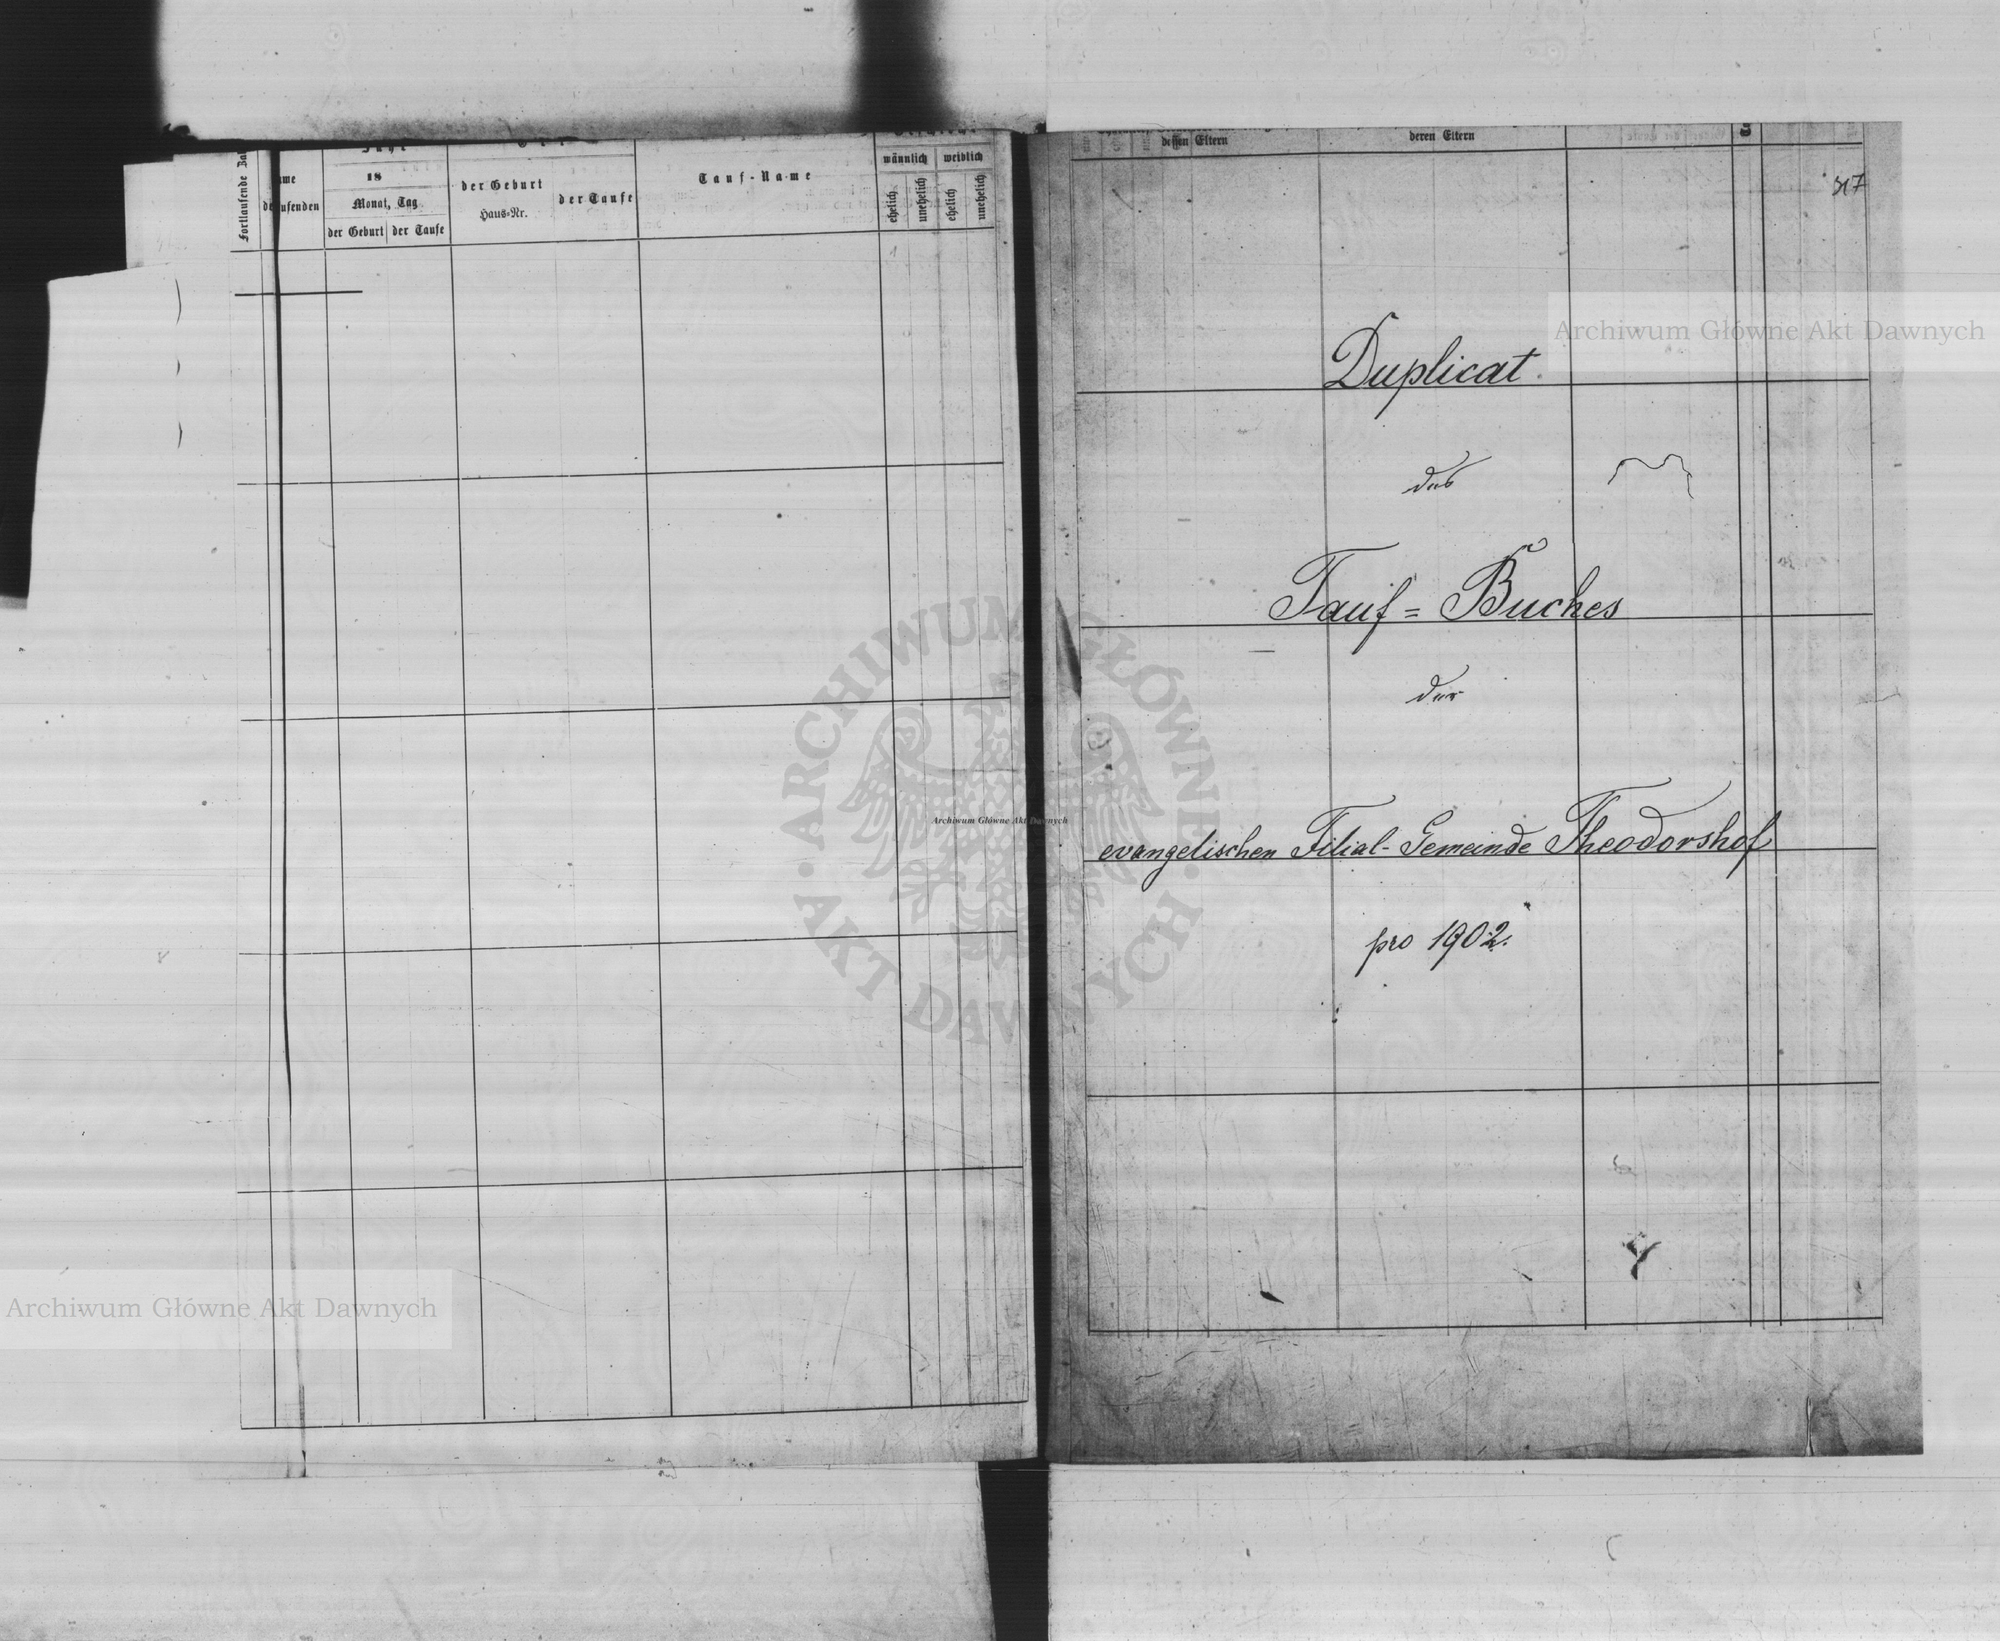 Fortlaufende
18
Monat, Tag
der Geburt der Taufe
der Geburt
Haus-Nr.
der Taufe
Tauf-Name
männlich weiblich
ehelich
unehelich
ehelich
unehelich
dessen Eltern
deren Eltern
Duplicat
des
Tauf=Buches
der
evangelischen Filial-Gemeinde Theodorshof
pro 1902.
Archiwum Główne Akt Dawnych
ARCHIWUM GŁÓWNE
Archiwum Główne Akt Dawnych
AKT DAWNYCH
Archiwum Główne Akt Dawnych